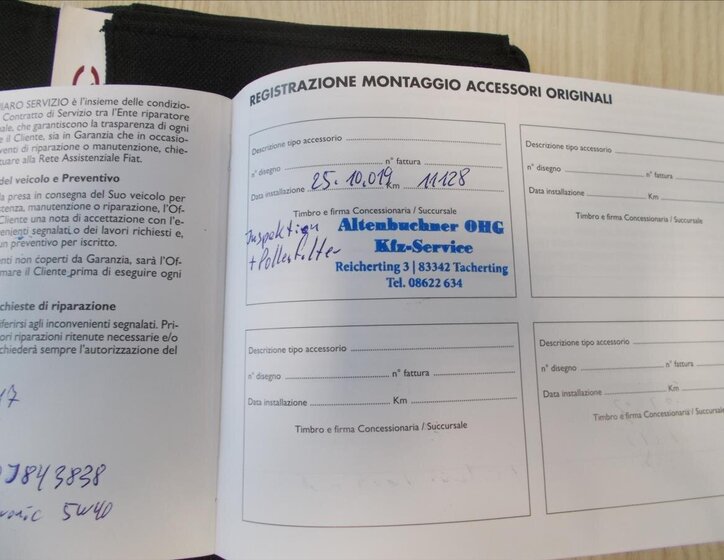 IARO SERVIZIO è l'insieme delle condizio-
Contratto di Servizio tra l'Ente riparatore
ale, che garantiscono la trasparenza di ogni
e il Cliente, sia in Garanzia che in occasio-
venti di riparazione o manutenzione, chie-
tuare alla Rete Assistenziale Fiat.
del veicolo e Preventivo
la presa in consegna del Suo veicolo per
stenza, manutenzione o riparazione, l'Of-
Cliente una nota di accettazione con l'e-
venienti segnalati, o dei lavori richiesti e,
un preventivo per iscritto.
enti non coperti da Garanzia, sarà l'Of-
mare il Cliente prima di eseguire ogni
chieste di riparazione
iferirsi agli inconvenienti segnalati. Pri-
ori riparazioni ritenute necessarie e/o
chiederà sempre l'autorizzazione del
17
J843838
ronic 5W40
REGISTRAZIONE MONTAGGIO ACCESSORI ORIGINALI
Descrizione tipo accessorio
n° disegno n° fattura
Data installazione 25.10.019 Km 11128
Timbro e firma Concessionaria / Succursale
Inspektion
+ Pollenfilter
Altenbuchner OHG
Kfz-Service
Reicherting 3 | 83342 Tacherting
Tel. 08622 634
Descrizione tipo accessorio
n° disegno n° fattura
Data installazione Km
Timbro e firma Concessionaria / Succursale
Descrizione tipo accessorio
n° disegno n° fattura
Data installazione Km
Timbro e firma Concessionaria / Succursale
Descrizione tipo accessorio
n° disegno n° fattura
Data installazione Km
Timbro e firma Concessionaria / Succursale